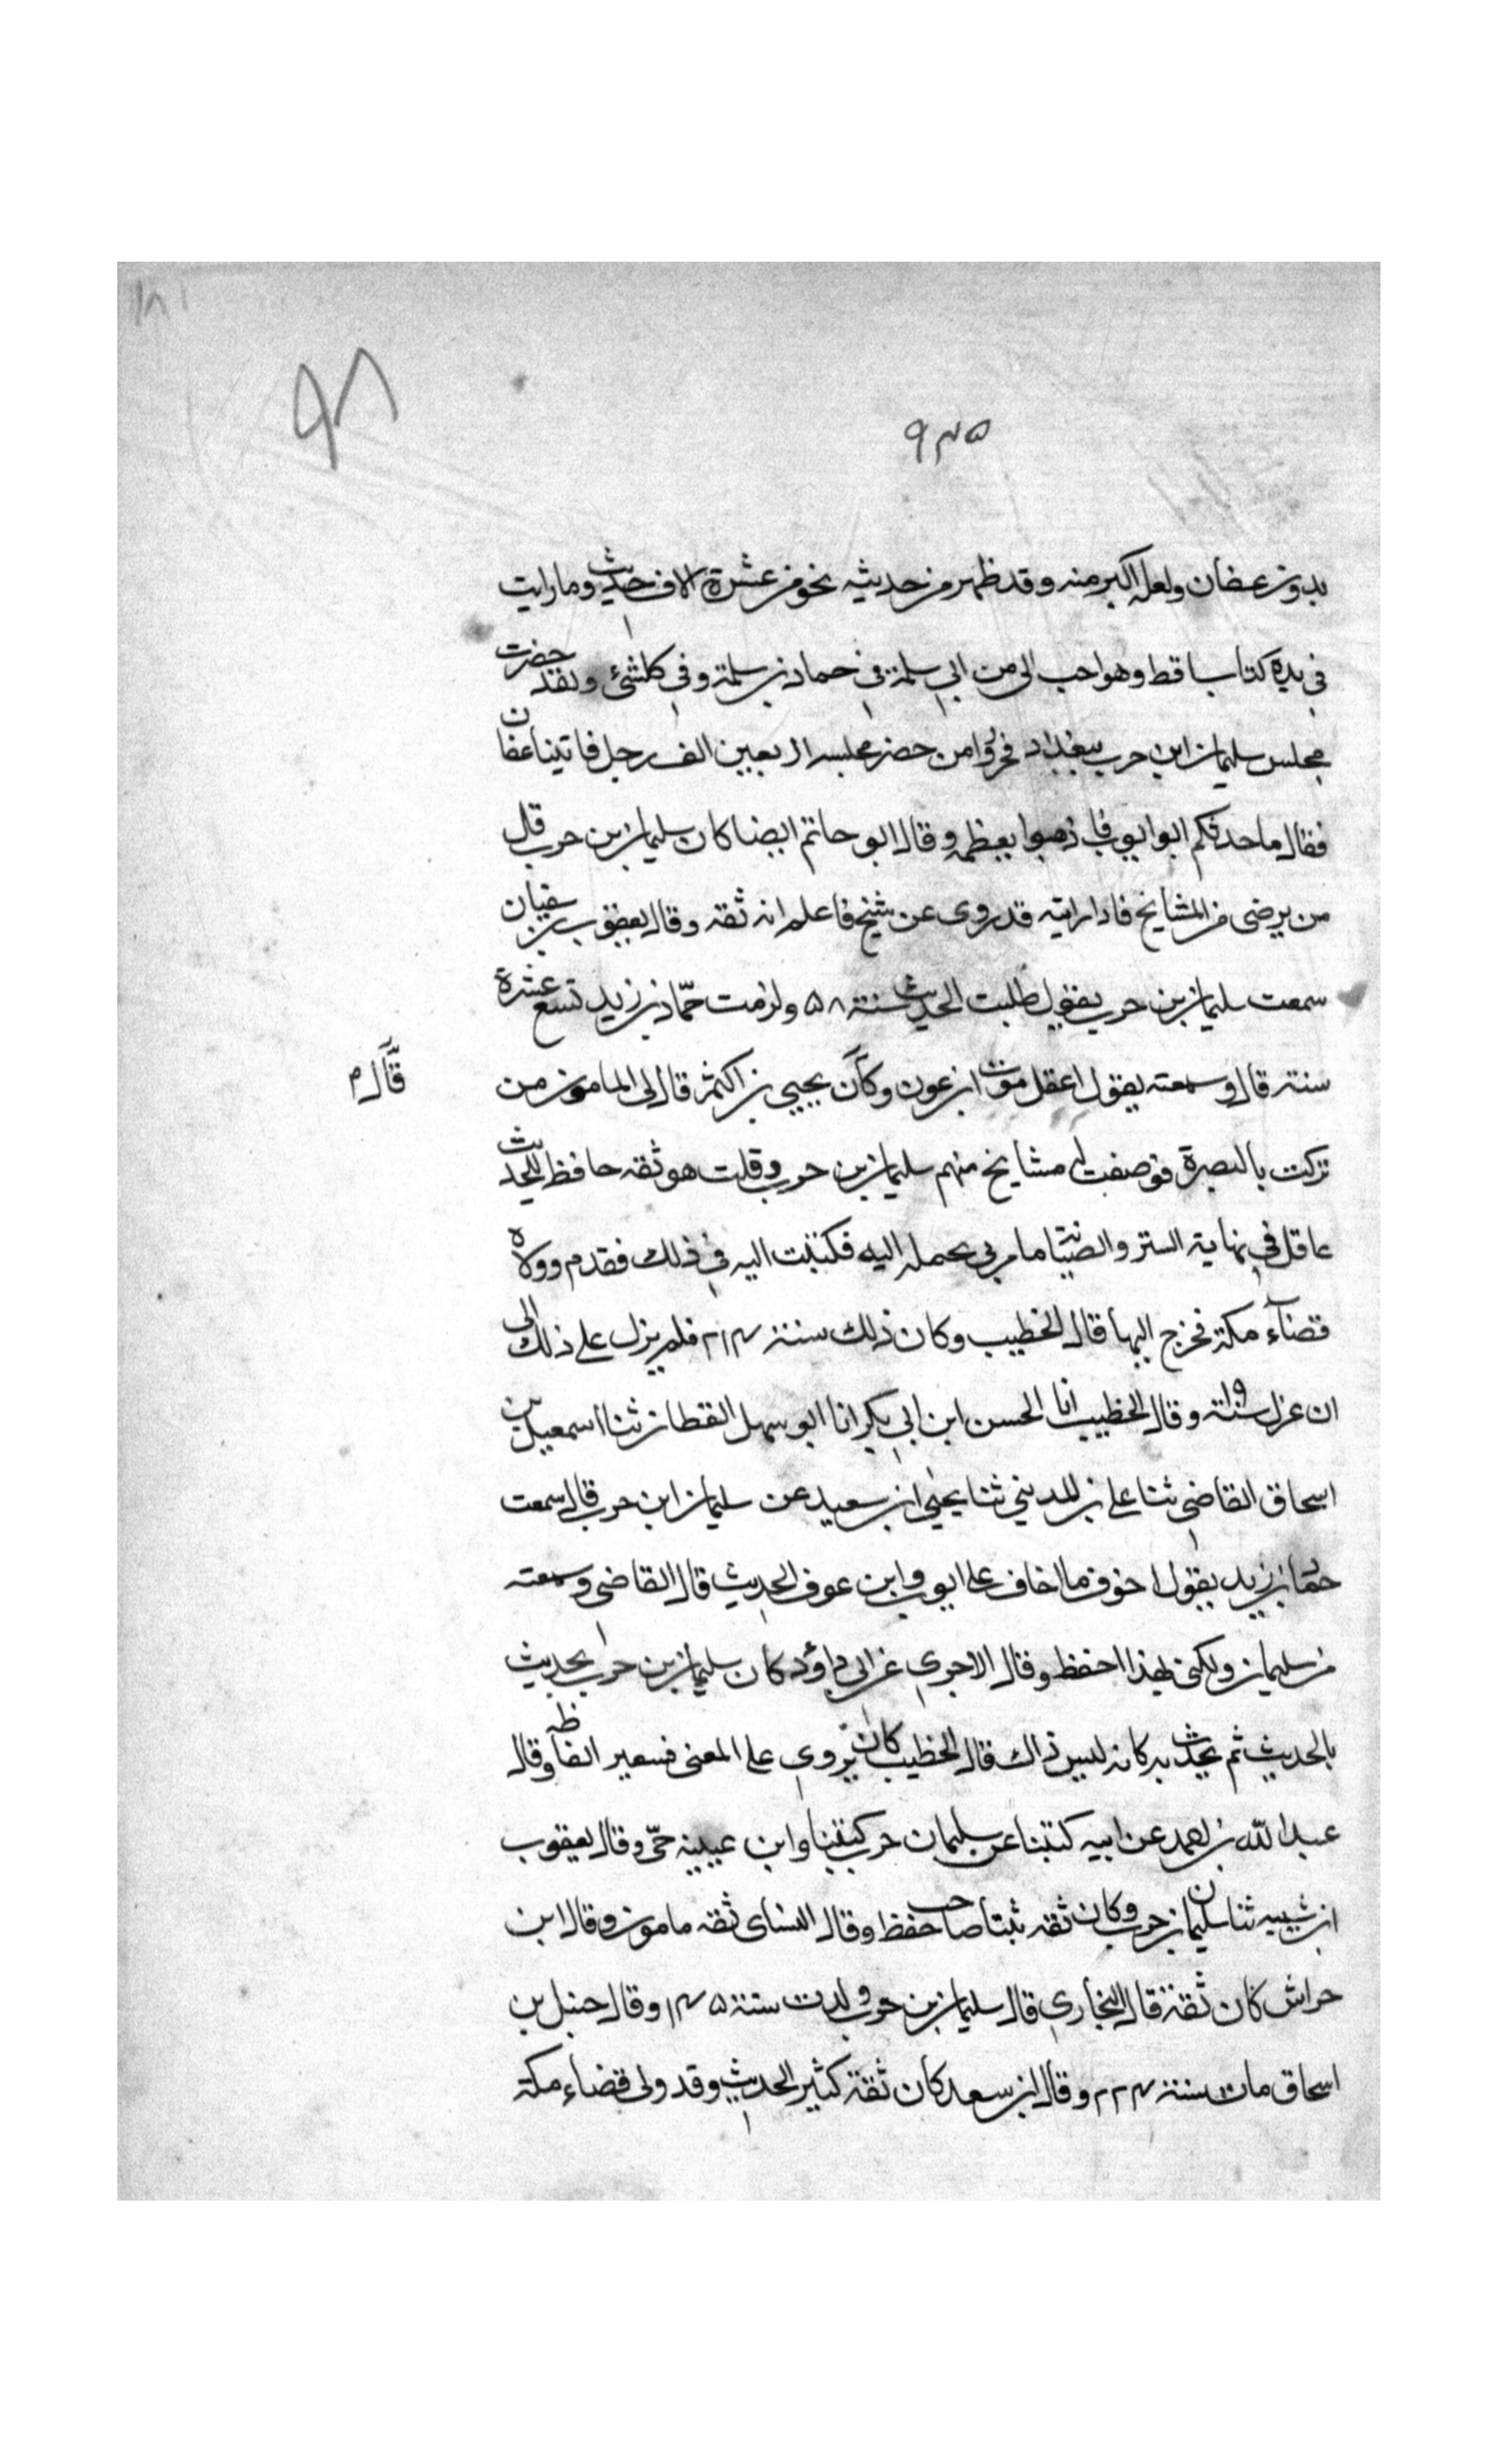 ١٨١
٩٨
٩٣٥
بدون عضان ولعله اكبر منه وقد ظهر من حديثه نحو من عشرة الاف حديث وما رايت
فى يده كتابا قط وهو احب الى من ابى سلمة فى حماد بن سلمة وفى كلشئ ولقد حضرت
مجلس سليمان ابن حرب ببغداد فحزروا من حضر مجلسه اربعين الف رجل فاتينا عفان
فقال ما حدثكم ابو ايوب فاذهبوا يعظمه وقال ابو حاتم ايضا كان سليمان بن حرب قل
من يرضى من المشايخ فاذا رايته قد روى عن شيخ فاعلم انه ثقه وقال يعقوب بن سفيان
سمعت سليمان بن حرب يقول طلبت الحديث سنة ٥٨ ولزمت حمّاد بن زيد تسع عشرة
سنة قال وسمعته يقول اعقل موت ابن عون وكان يحيى بن اكثم قال لى المامون من
قال م
تركت بالبصرة فوصفت له مشايخ منهم سليمان بن حرب وقلت هو ثقه حافظ للحديث
عاقل فى نهاية الستر والصيانة فامرنى بحمله اليه فكتبت اليه فى ذلك فقدم وولاه
قضآء مكة فخرج اليها قال الخطيب وكان ذلك سنة ٢١٤ فلم يزل على ذلك الى
ان عزل سنة وقال الخطيب انا الحسن ابن ابى بكر انا ابو سهل القطان ثنا اسمعيل بن
اسحاق القاضى ثنا على بن المدينى ثنا يحيى ابن سعيد عن سليمان ابن حرب قال سمعت
حماد بن زيد يقول اخوف ما اخاف على ايوب وابن عوف الحديث قال القاضى وسمعته
من سليمان ولكنى لهذا احفظ وقال الاجرى عن ابى داؤد كان سليمان بن حرب يحديث
بالحديث ثم يحدث به كانه ليس ذاك قال الخطيب كان يروى على المعنى فسعير الفاظه وقال
عبد الله بن احمد عن ابيه كتبنا عن سليمان حرب كتبنا وابن عيينه حى وقال يعقوب
ابن شيبه ثنا سليمان بن حرب وكان ثقه ثبتا صاحب حفظ وقال النساى ثقه مامون وقال ابن
حراش كان ثقة قال البخارى قال سليمان بن حرب ولدت سنة ١٤٥ وقال حنبل بن
اسحاق مات سنة ٢٢٤ وقال ابن سعد كان ثقة كثير الحديث وقد ولى قضاء مكة